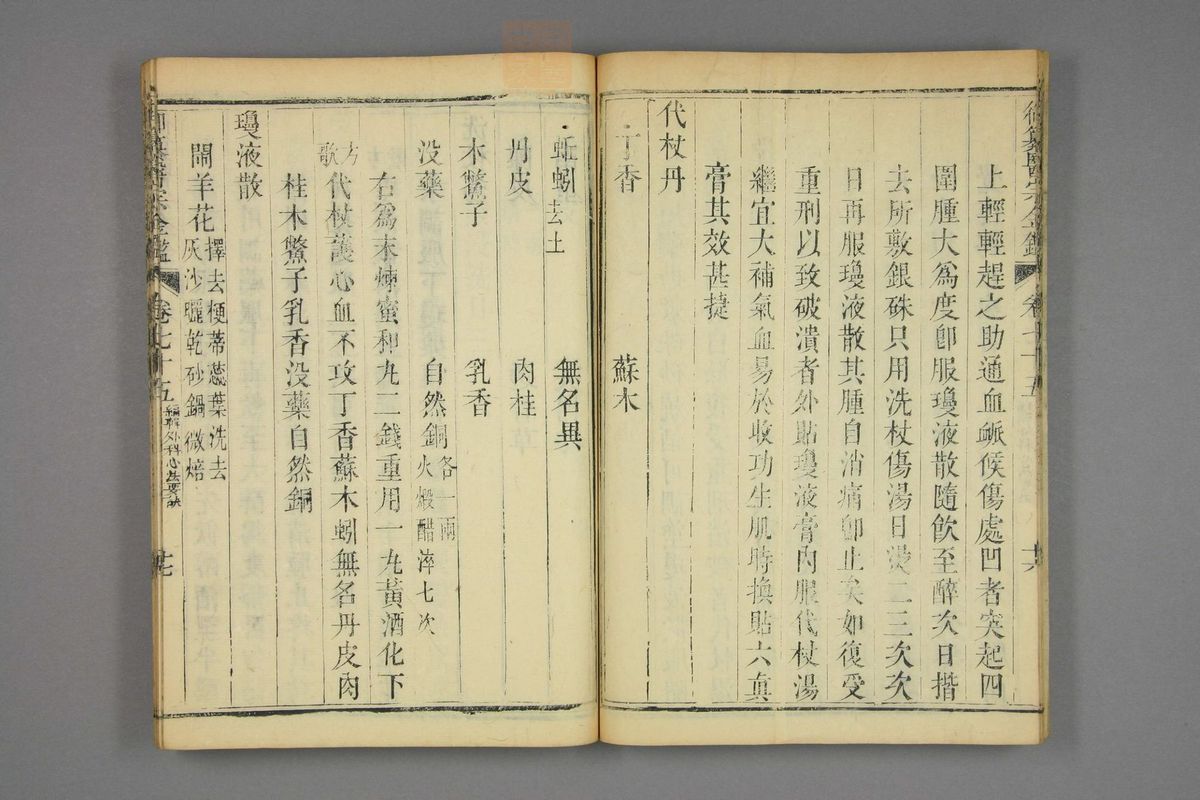 御纂醫宗金鑑 卷七十五 十六
上輕輕趕之助通血脈候傷處凹者突起四
圍腫大為度卽服瓊液散隨飲至醉次日揩
去所敷銀硃只用洗杖傷湯日燙二三次次
日再服瓊液散其腫自消痛卽止矣如復受
重刑以致破潰者外貼瓊液膏內服代杖湯
繼宜大補氣血易於收功生肌時換貼六真
膏其效甚捷
代杖丹
丁香 蘇木
蚯蚓去土 無名異
丹皮 肉桂
木鱉子 乳香
没藥 自然銅火煅醋淬七次各一兩
右為末煉蜜和丸二錢重用一丸黃酒化下
方歌 代杖護心血不攻丁香蘇木蚓無名丹皮肉
桂木鱉子乳香没藥自然銅
瓊液散
鬧羊花擇去梗蒂蕊葉洗去灰沙曬乾砂鍋微焙
御纂醫宗金鑑 卷七十五 編輯外科心法要訣 十七